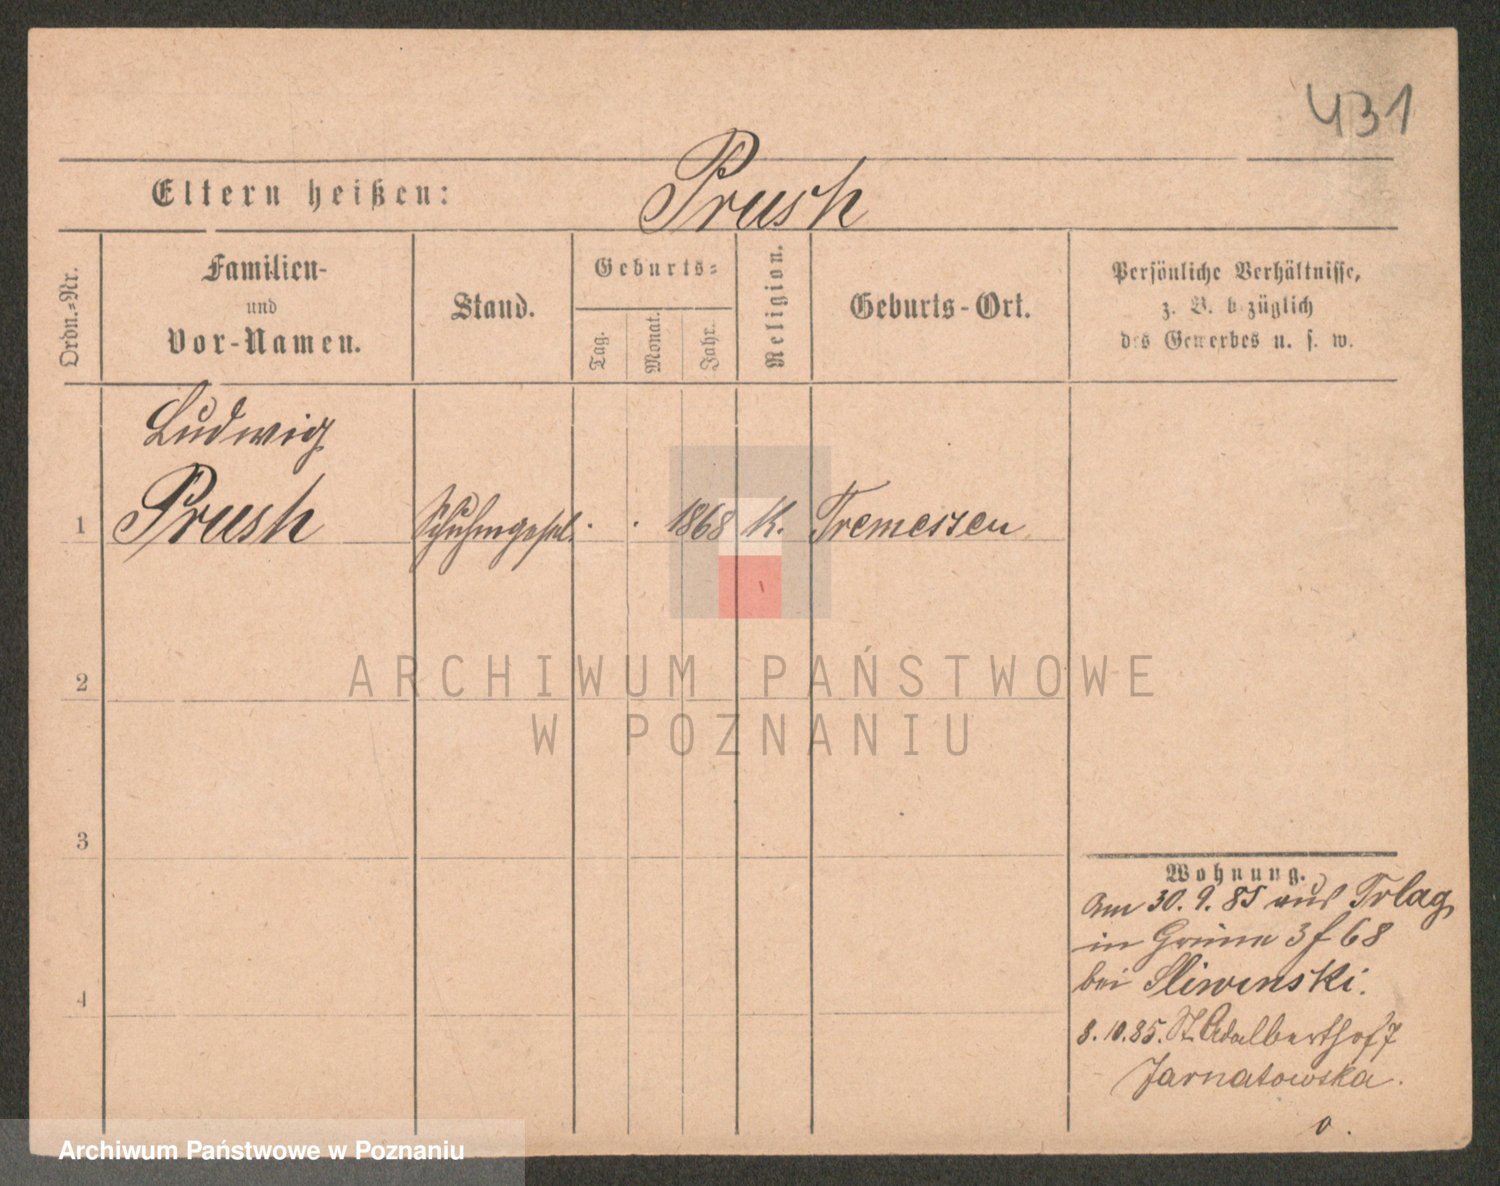 431
Eltern heißen: Prush
Ordn.-Nr.
Familien-
und
Vor-Namen.
Stand.
Geburts-
Tag.
Monat.
Jahr.
Religion.
Geburts-Ort.
Persönliche Verhältnisse,
z. B. bezüglich
des Gewerbes u. s. w.
Ludwig
1 Prush Schuhmgesel. 1868 K. Tremessen
2
3
4
ARCHIWUM PAŃSTWOWE
W POZNANIU
Wohnung.
Am 30. 9. 85 aus Trlag
in 3 f 68
bei Sliwinski.
8. 10. 85. St. Adalberthof 7
Jarnatowska.
Archiwum Państwowe w Poznaniu